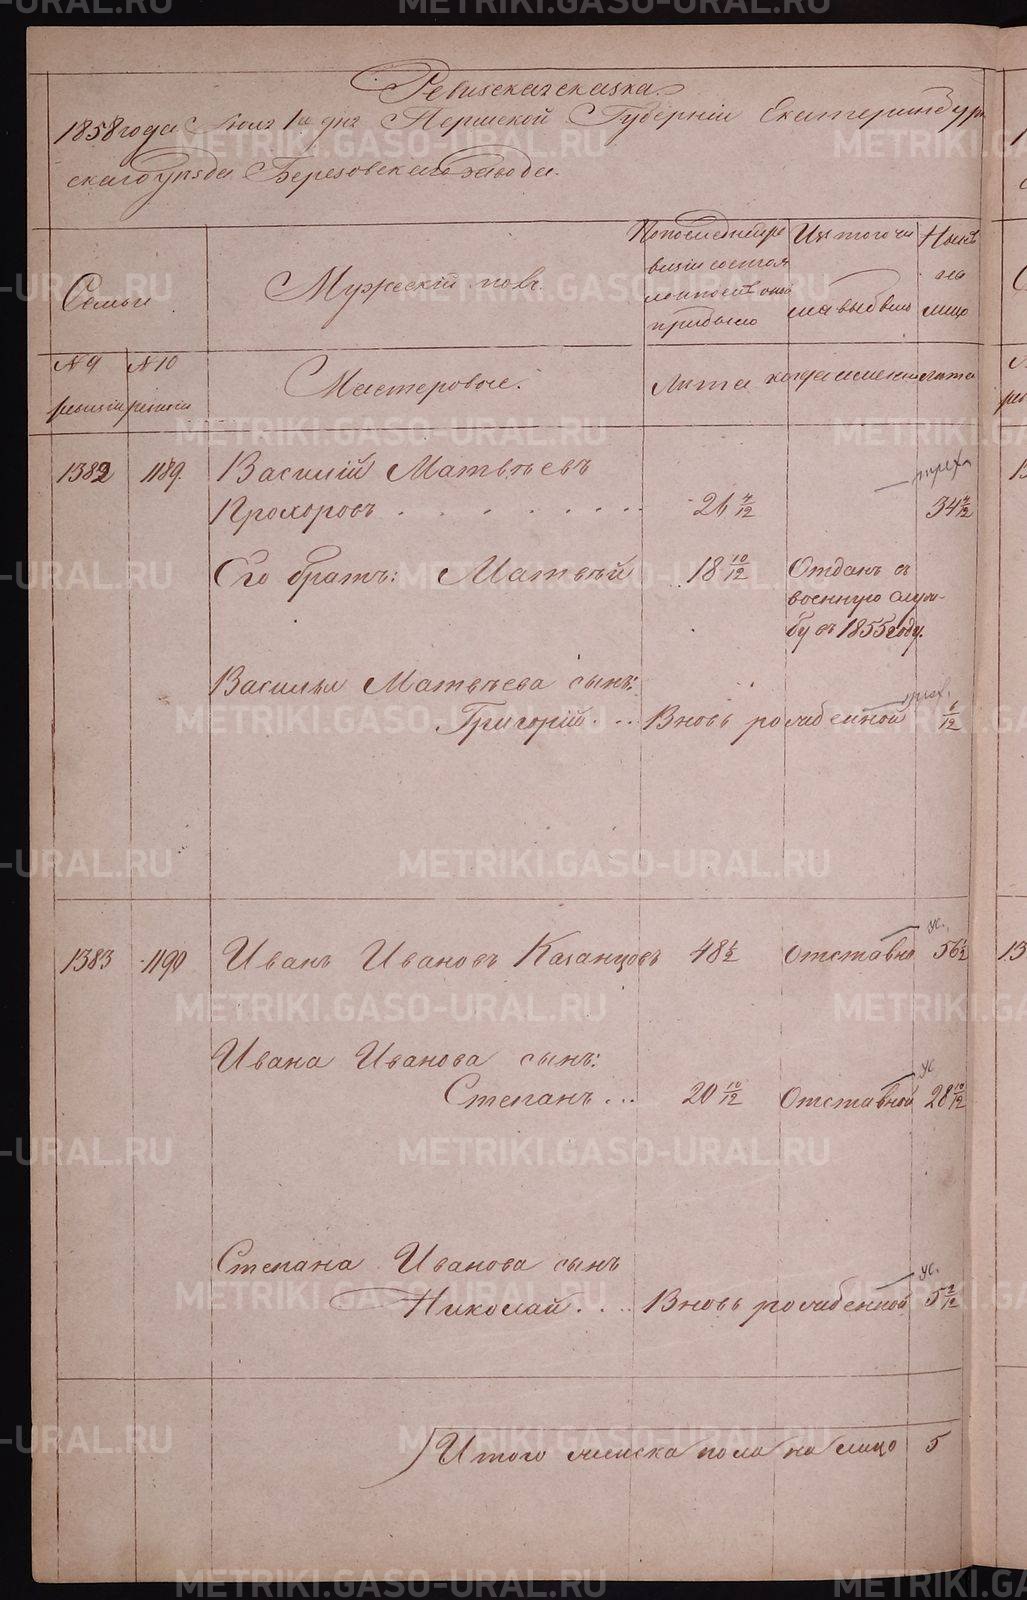 Ревизская сказка
1858 года Июля 1го дня Пермской Губернiи Екатеринбур
скаго уѣзда Березовскаго Завода.
Семьи
Мужескiй полъ
По последней ре
визiи состоя
ло и послѣ оной
прибыло
Изъ того чи
сла выбыло
Нынѣ
на
лицо
№ 9
ревизiи
№ 10
ревизiи
Мастеровые.
Лѣта
когда именно
лѣта
1382 1189. Василiй Матвѣевъ
Прохоровъ . . . . . . . . 26 4/12 34 4/12
Его братъ: Матвѣй 18 10/12 Отданъ въ
военную служ-
бу въ 1855 году.
Василья Матвѣева сынъ:
Григорiй . . . Вновь рожденной 6/12
1383 1190 Иванъ Ивановъ Казанцовъ 48 1/2 Отставно 56 1/2
Ивана Иванова сынъ:
Степанъ . . . 20 10/12 Отставной 28 10/12
Степана Иванова сынъ
Николай . . . . Вновь рожденной 5 2/12
Итого мужеска пола на лицо 5
METRIKI.GASO-URAL.RU